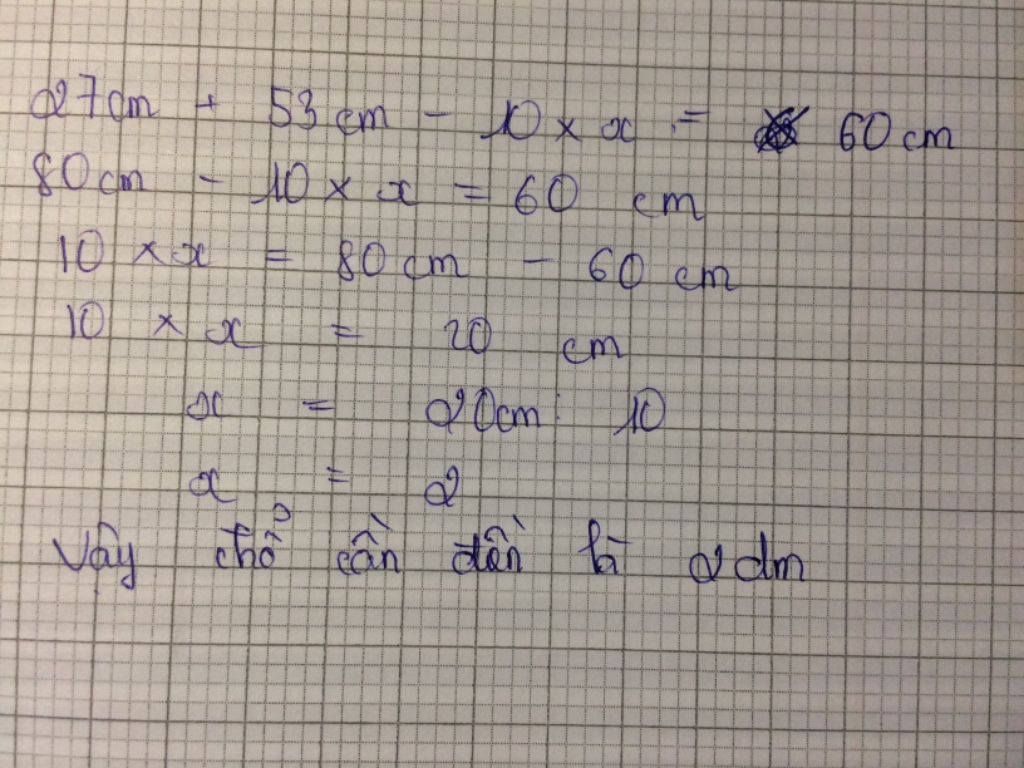 27cm + 53cm - 10 × x = 60cm
80cm - 10 × x = 60 cm
10 × x = 80cm - 60 cm
10 × x = 20 cm
x = 20cm : 10
x = 2
Vậy chổ cần điền là 2dm